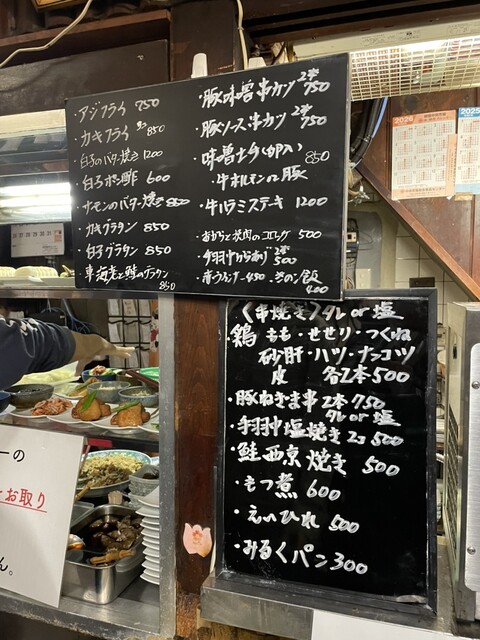 ・アジフライ 750
・カキフライ 850
・白子のバター焼き 1200
・白子ポン酢 600
・サーモンのバター焼き 850
・カキグラタン 850
・白子グラタン 850
・車海老と鮭のグラタン 850
・豚味噌串カツ 2本 750
・豚ソース串カツ 2本 750
・味噌おでん(卵入) 850
・牛ホルモン or 豚
・牛ハラミステキ 1200
・おからと挽肉のコロッケ 500
・手羽中からあげ 500
・赤ウインナー 450
400
〈串焼き〉タレ or 塩
・鶏 もも・せせり・つくね
砂肝・ハツ・ナンコツ
皮 各2本 500
・豚ねぎま串 2本 750
タレ or 塩
・手羽中塩焼き 2コ 500
・鮭西京焼き 500
・もつ煮 600
・えいひれ 500
・みるくパン 300
ーの
お取り
ん。
2026
2025